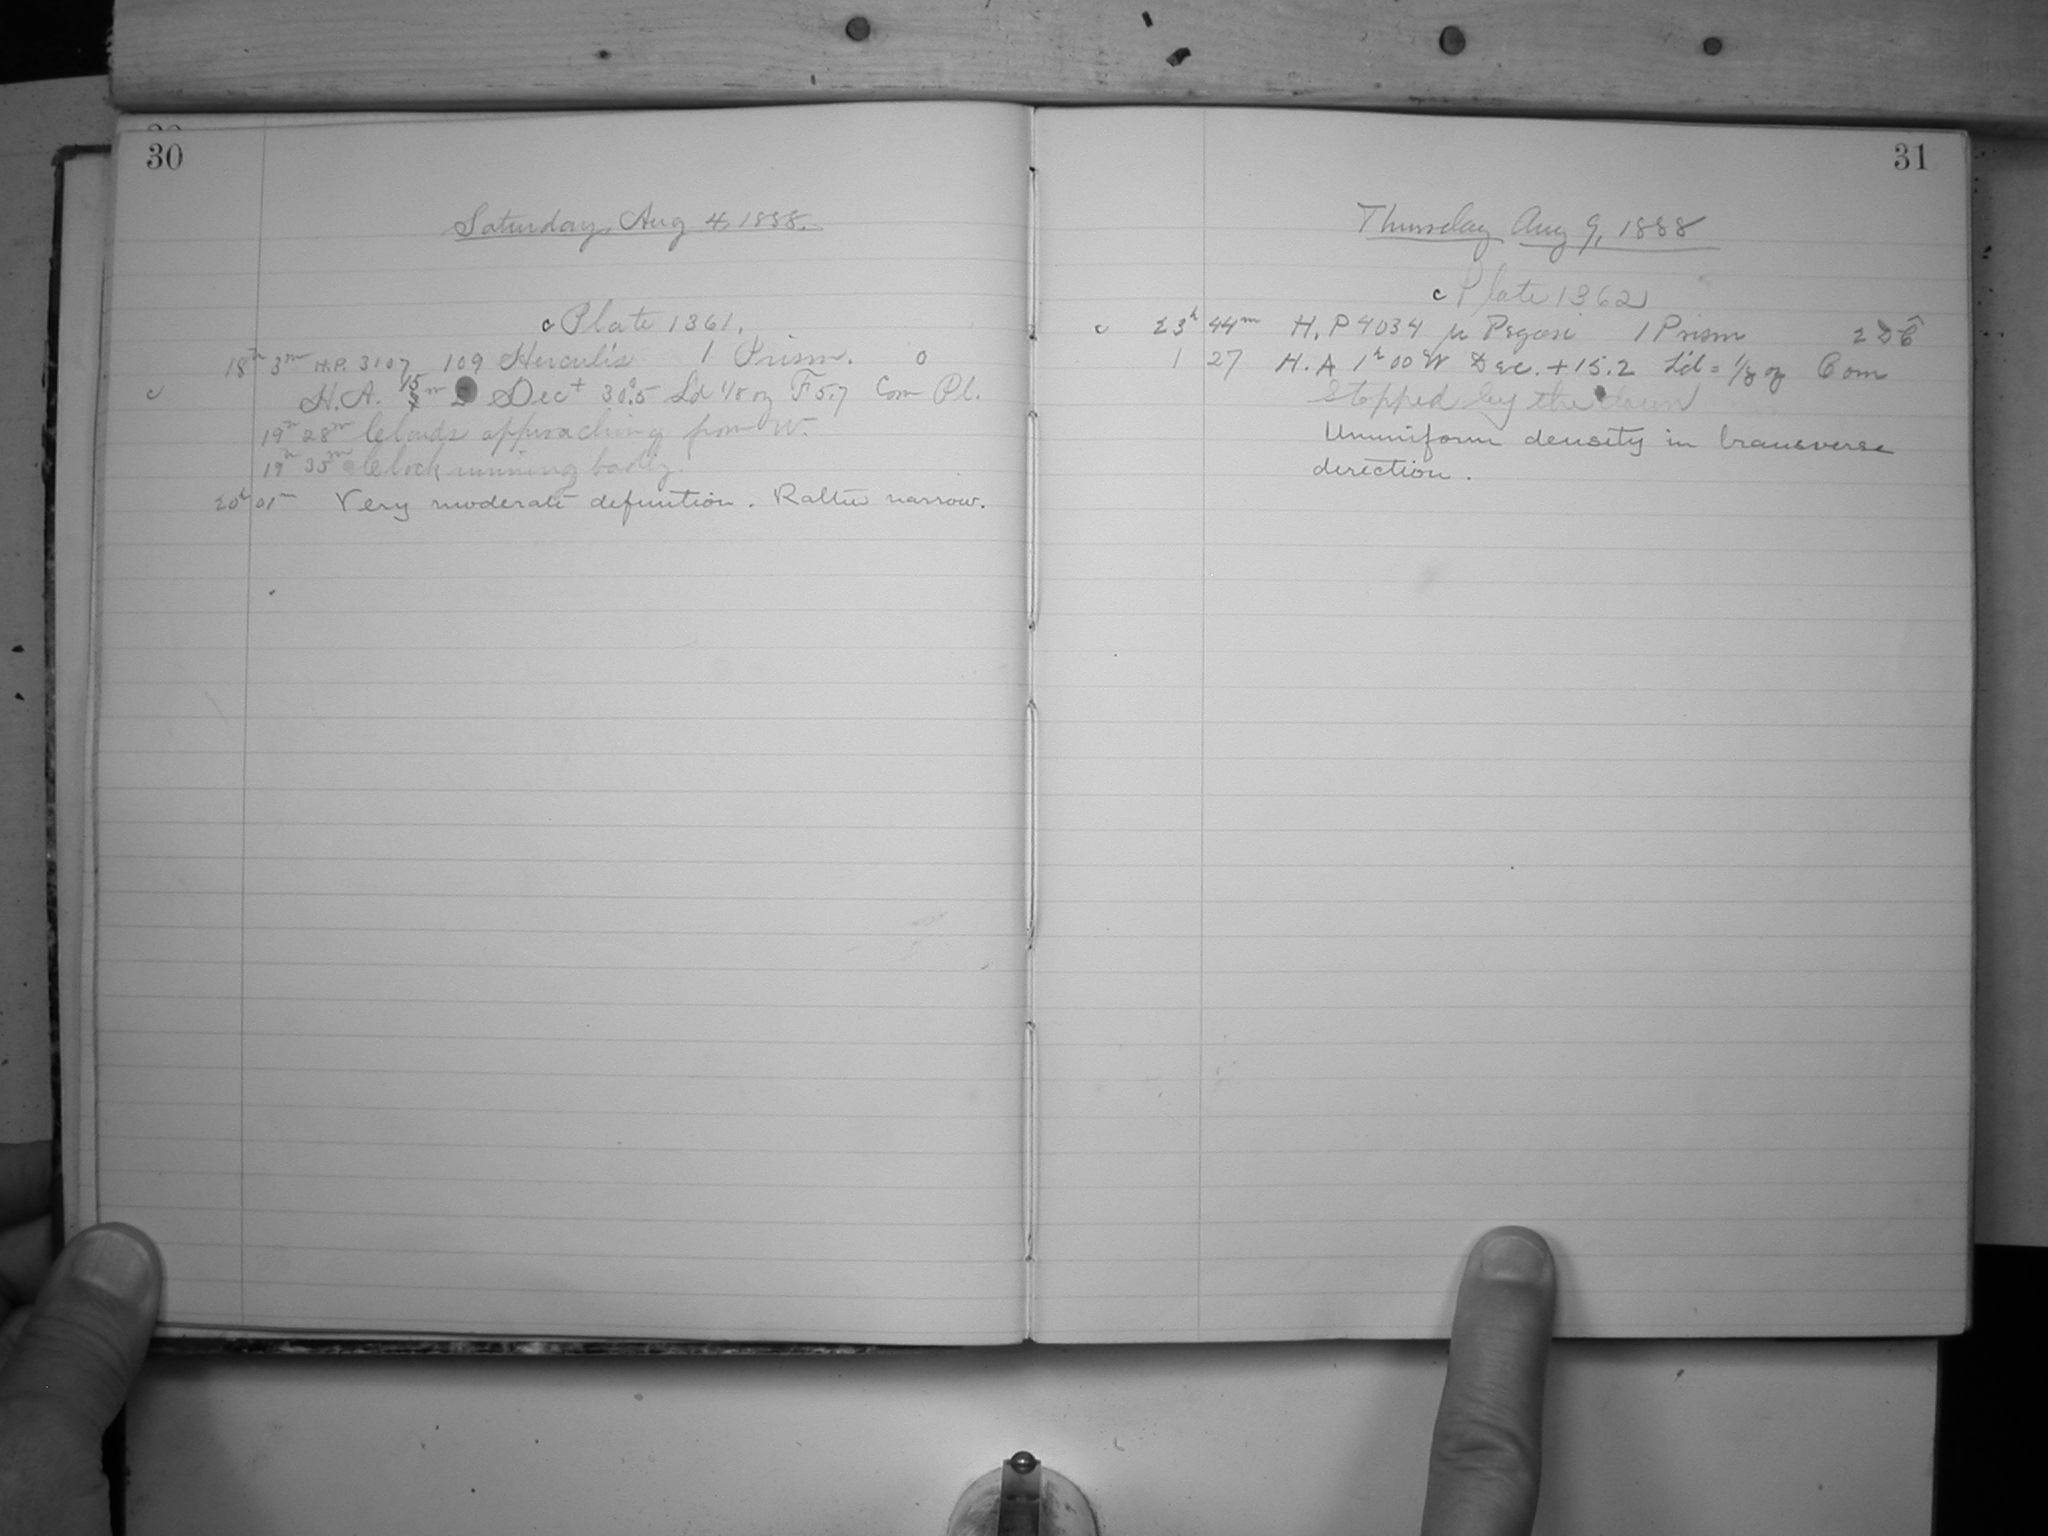 30
Saturday, Aug 4, 1888.
c Plate 1361.
18h 3m H.P. 3107 109 Herculis 1 Prism. 0
c H.A. 15m Dec + 30°.5 L'd 1/8 oz F 5.7 Com Pl.
19h 28m Clouds approaching from W.
19h 35m Clock running badly.
20h 01m Very moderate definition. Rather narrow.
31
Thursday Aug 9, 1888
c Plate 1362
c 23h 44m H.P 4034 μ Pegasi 1 Prism
1 27 H.A 1h 00 W Dec. +15.2 L'd = 1/8 oz Com
Stopped by the dawn
Ununiform density in transverse
direction.